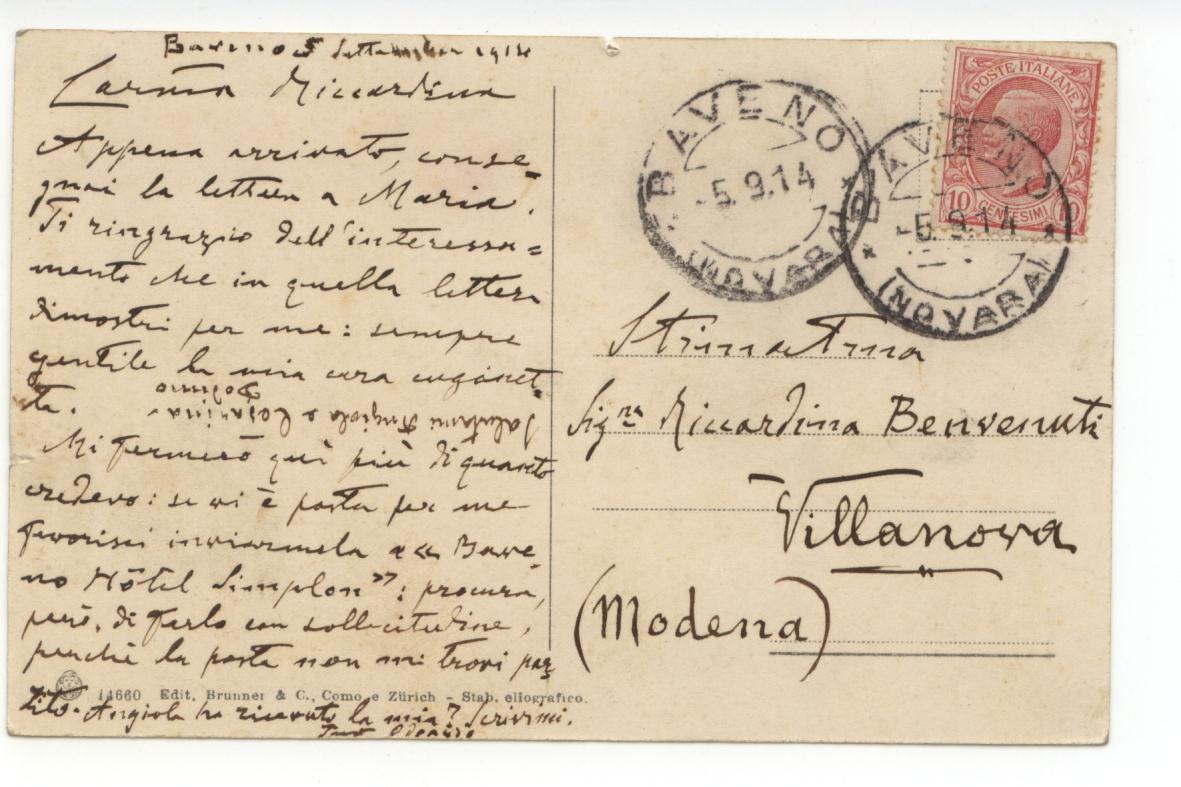 Baveno 5 Settembre 1914
Carma Riccardina
Appena arrivato, conse=
gnai la lettera a Maria.
Ti ringrazio dell'interessa=
mento che in quella lettera
dimostri per me: sempre
gentile la mia cara cuginet=
ta.
Salutami Angiola e Cesarina
Mi fermerò qui più di quanto
credevo: se vi è posta per me
favorisci inviarmela a « Bave=
no Hôtel Simplon": procura,
però, di farlo con sollecitudine,
perchè la posta non mi trovi par=
tito. Angiola ha ricevuto la mia? Scrivimi.
Tuo
14660 Edit. Brunner & C., Como e Zürich - Stab. eliografico.
BAVENO
5.9.14
(NOVARA)
BAVENO
5.9.14
(NOVARA)
POSTE ITALIANE
10 CENTESIMI 10
Stimatma
Sigra Riccardina Benvenuti
Villanova
(Modena)